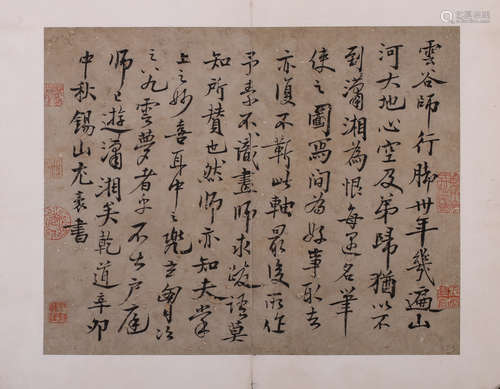 雲谷師行脚卅年幾遍山
河大地心空及第歸猶以不
到瀟湘為恨每遇名筆
使之圖焉間為好事取去
亦復不靳此軸最後所作
予素不識畫師求跋語莫
知所贊也然師亦知夫掌
上之妙喜耳中之兜立胷次
之九雲夢者乎不出戶庭
師已遊瀟湘矣乾道辛卯
中秋錫山尤袤書